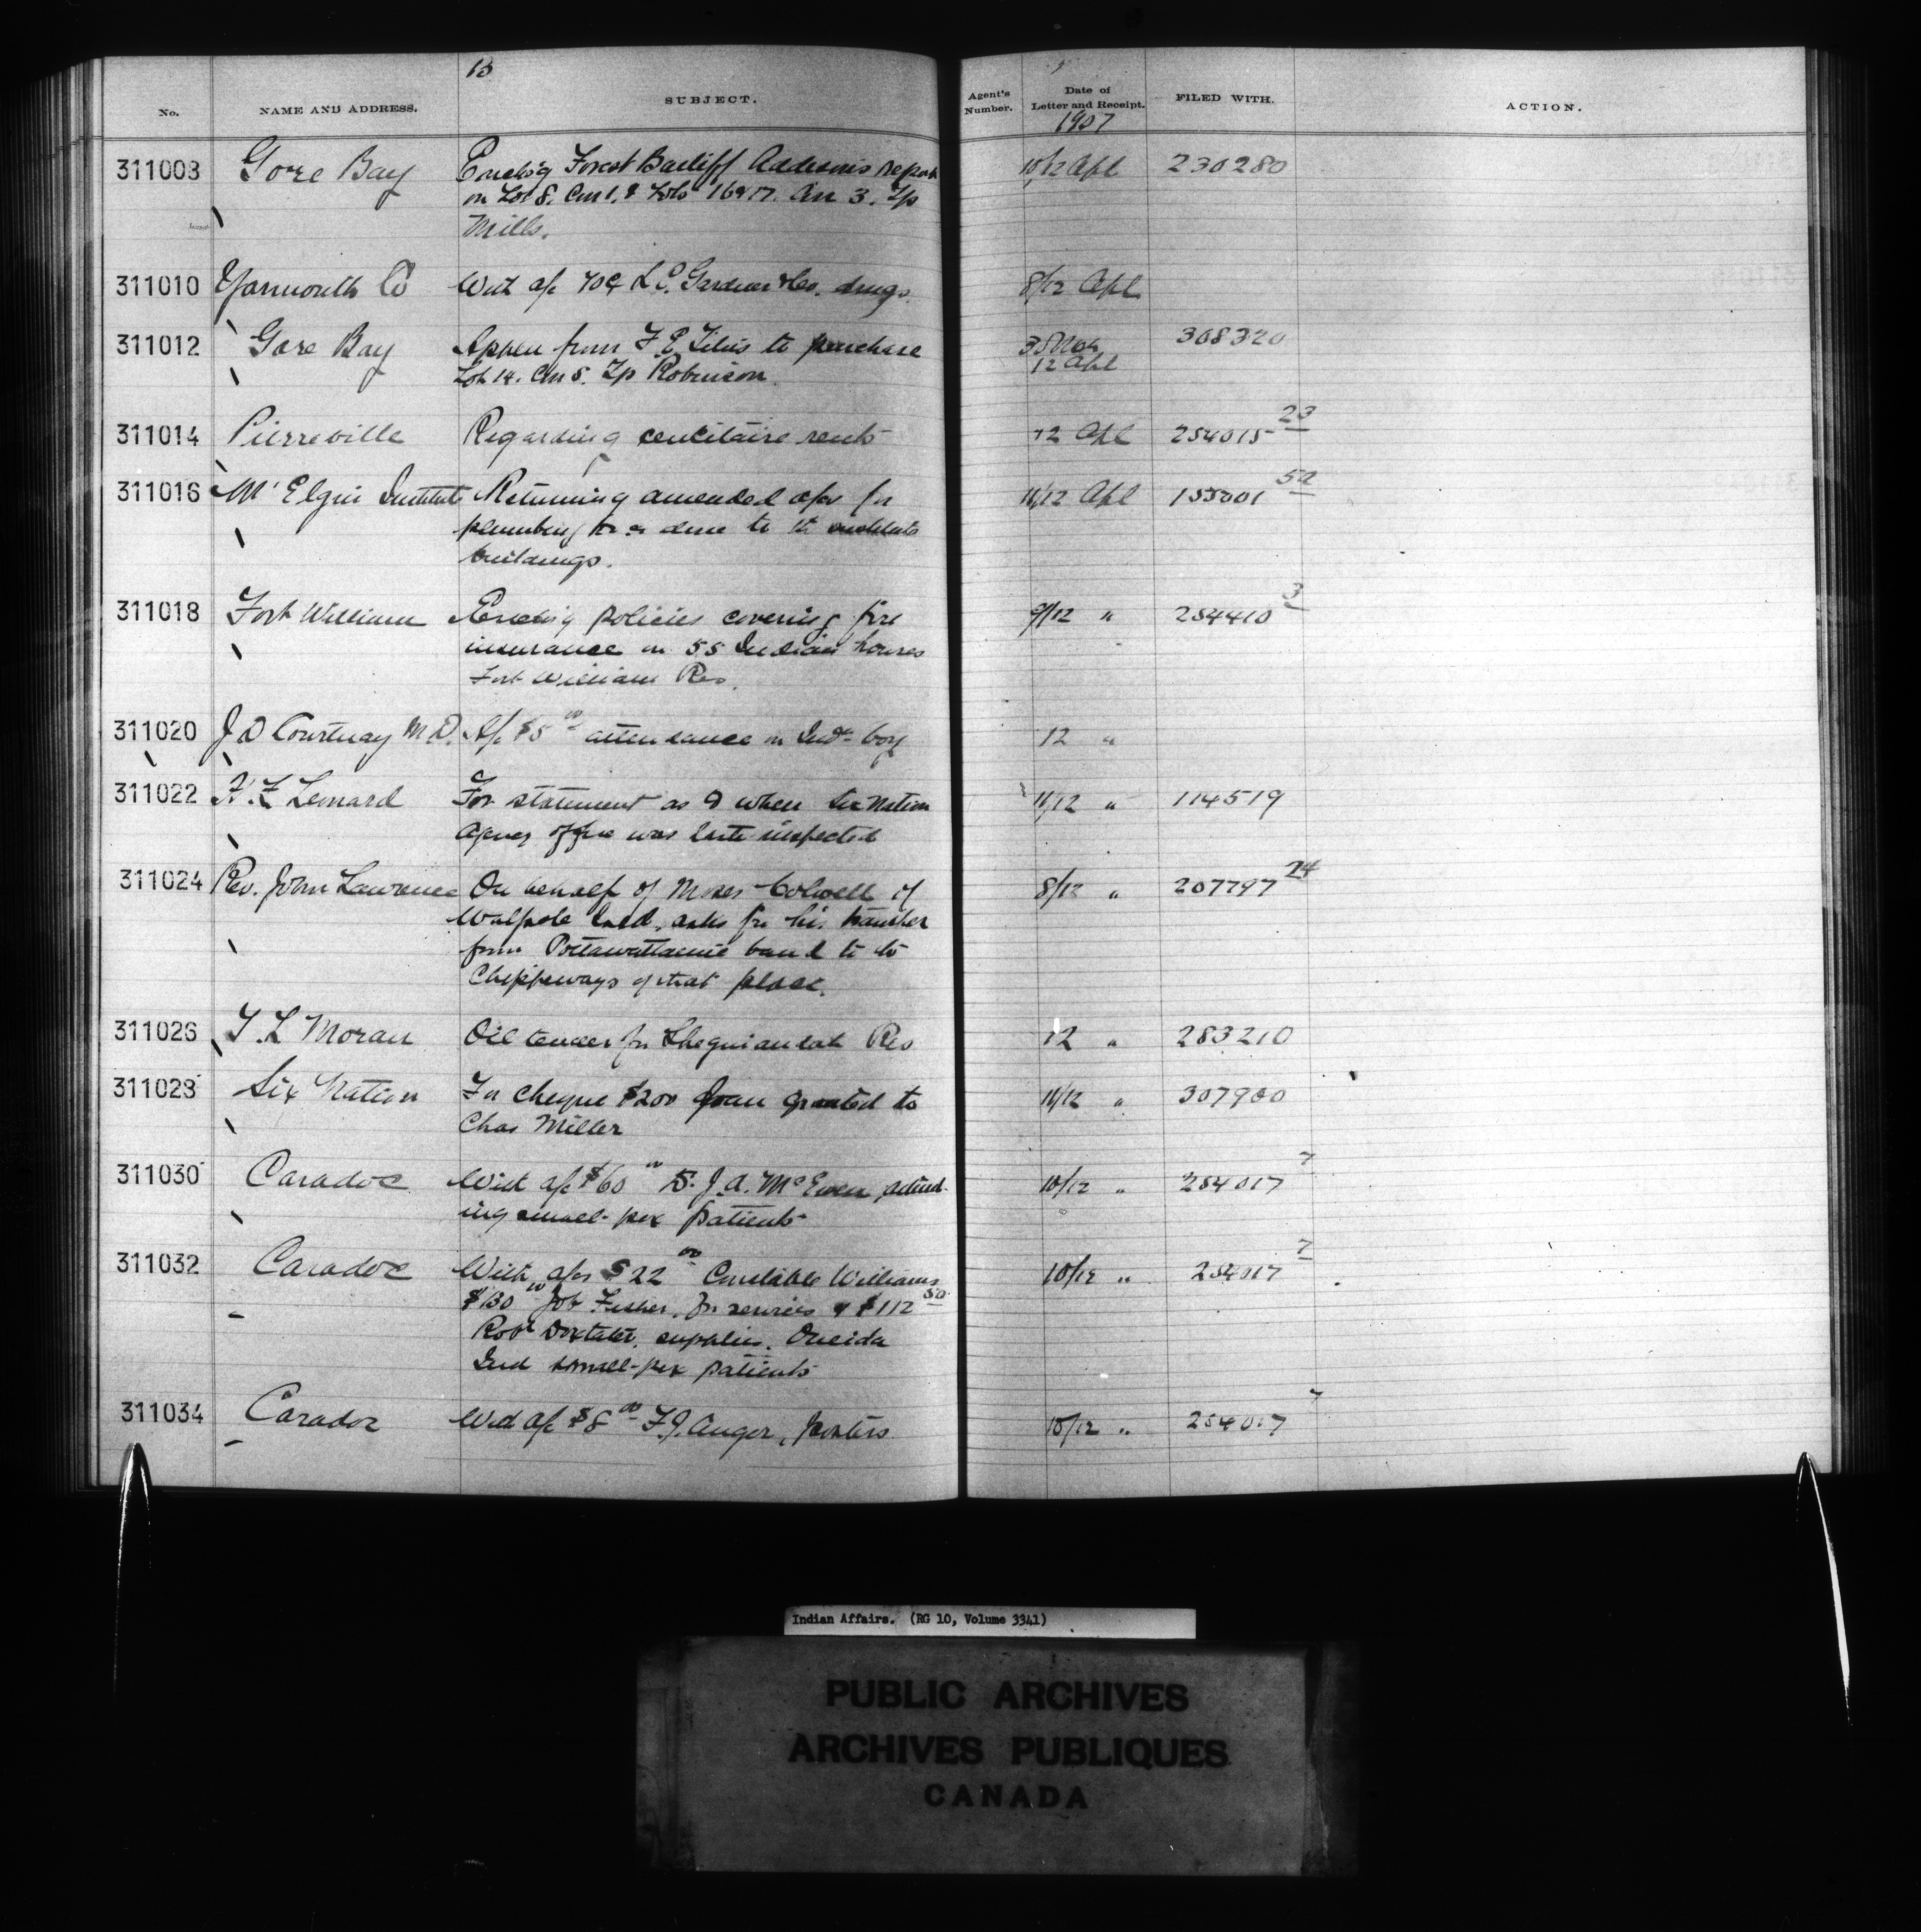 13
No. NAME AND ADDRESS. SUBJECT. Agent's Number. Date of Letter and Receipt. FILED WITH. ACTION.
1907
311008 Gore Bay Encls'g Forest Bailiff report 10/12 Apl 230280
on Lot 8. Con 1. & Lots 16 & 17. Con 3. Tp
Mills.
311010 Yarmouth Co With a/c 70¢ L.C. Gardner & Co. drugs. 8/12 Apl
311012 Gore Bay Appcn from F.E. Titus to purchase 308320
Lot 14. Con 5. Tp Robinson. 12 Apl
311014 Pierreville Regarding rents 12 Apl 254015 23
311016 Mt Elgin Institute Returning amended a/cs for 11/12 Apl 155001 52
plumbing &c done to the institute
buildings.
311018 Fort William Enclos'g policies covering fire 9/12 " 254410 3
insurance on 55 Indian houses
Fort William Res.
311020 J D Courtnay M.D. A/c $5 00 attendance on Indn boy 12 "
311022 Lennard For statement as to when Six Nation 11/12 " 114519
Agency office was last inspected
311024 Rev. John Lawrence On behalf of Moses Colwell of 8/12 " 207797 24
Walpole Isld, asks for his transfer
from Pottawattamie band to the
Chippeways of that place.
311026 T. L Moran Oil tender for Sheguiandah Res 12 " 283210
311028 Six Nation For cheque $200 loan granted to 11/12 " 307900
Chas Miller
311030 Caradoc With a/c $60 00 Dr. J.A. McEwen attend- 10/12 " 254017 7
ing small-pox patients
311032 Caradoc With a/cs $22 00 Constable Williams 10/12 " 254017 7
$130 00 Job Fisher, for services & $112 50
Robt Doxtater, supplies. Oneida
Ind small-pox patients
311034 Caradoc With a/c $8 00 F.J. Auger, posters 10/12 " 254017 7
Indian Affairs. (RG 10, Volume 3341)
PUBLIC ARCHIVES
ARCHIVES PUBLIQUES
CANADA